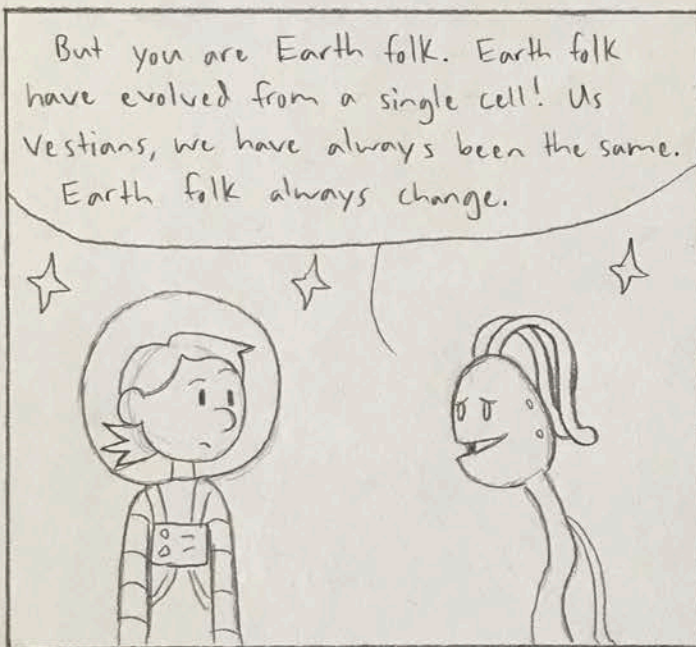 But you are Earth folk. Earth folk
have evolved from a single cell! Us
Vestians, we have always been the same.
Earth folk always change.